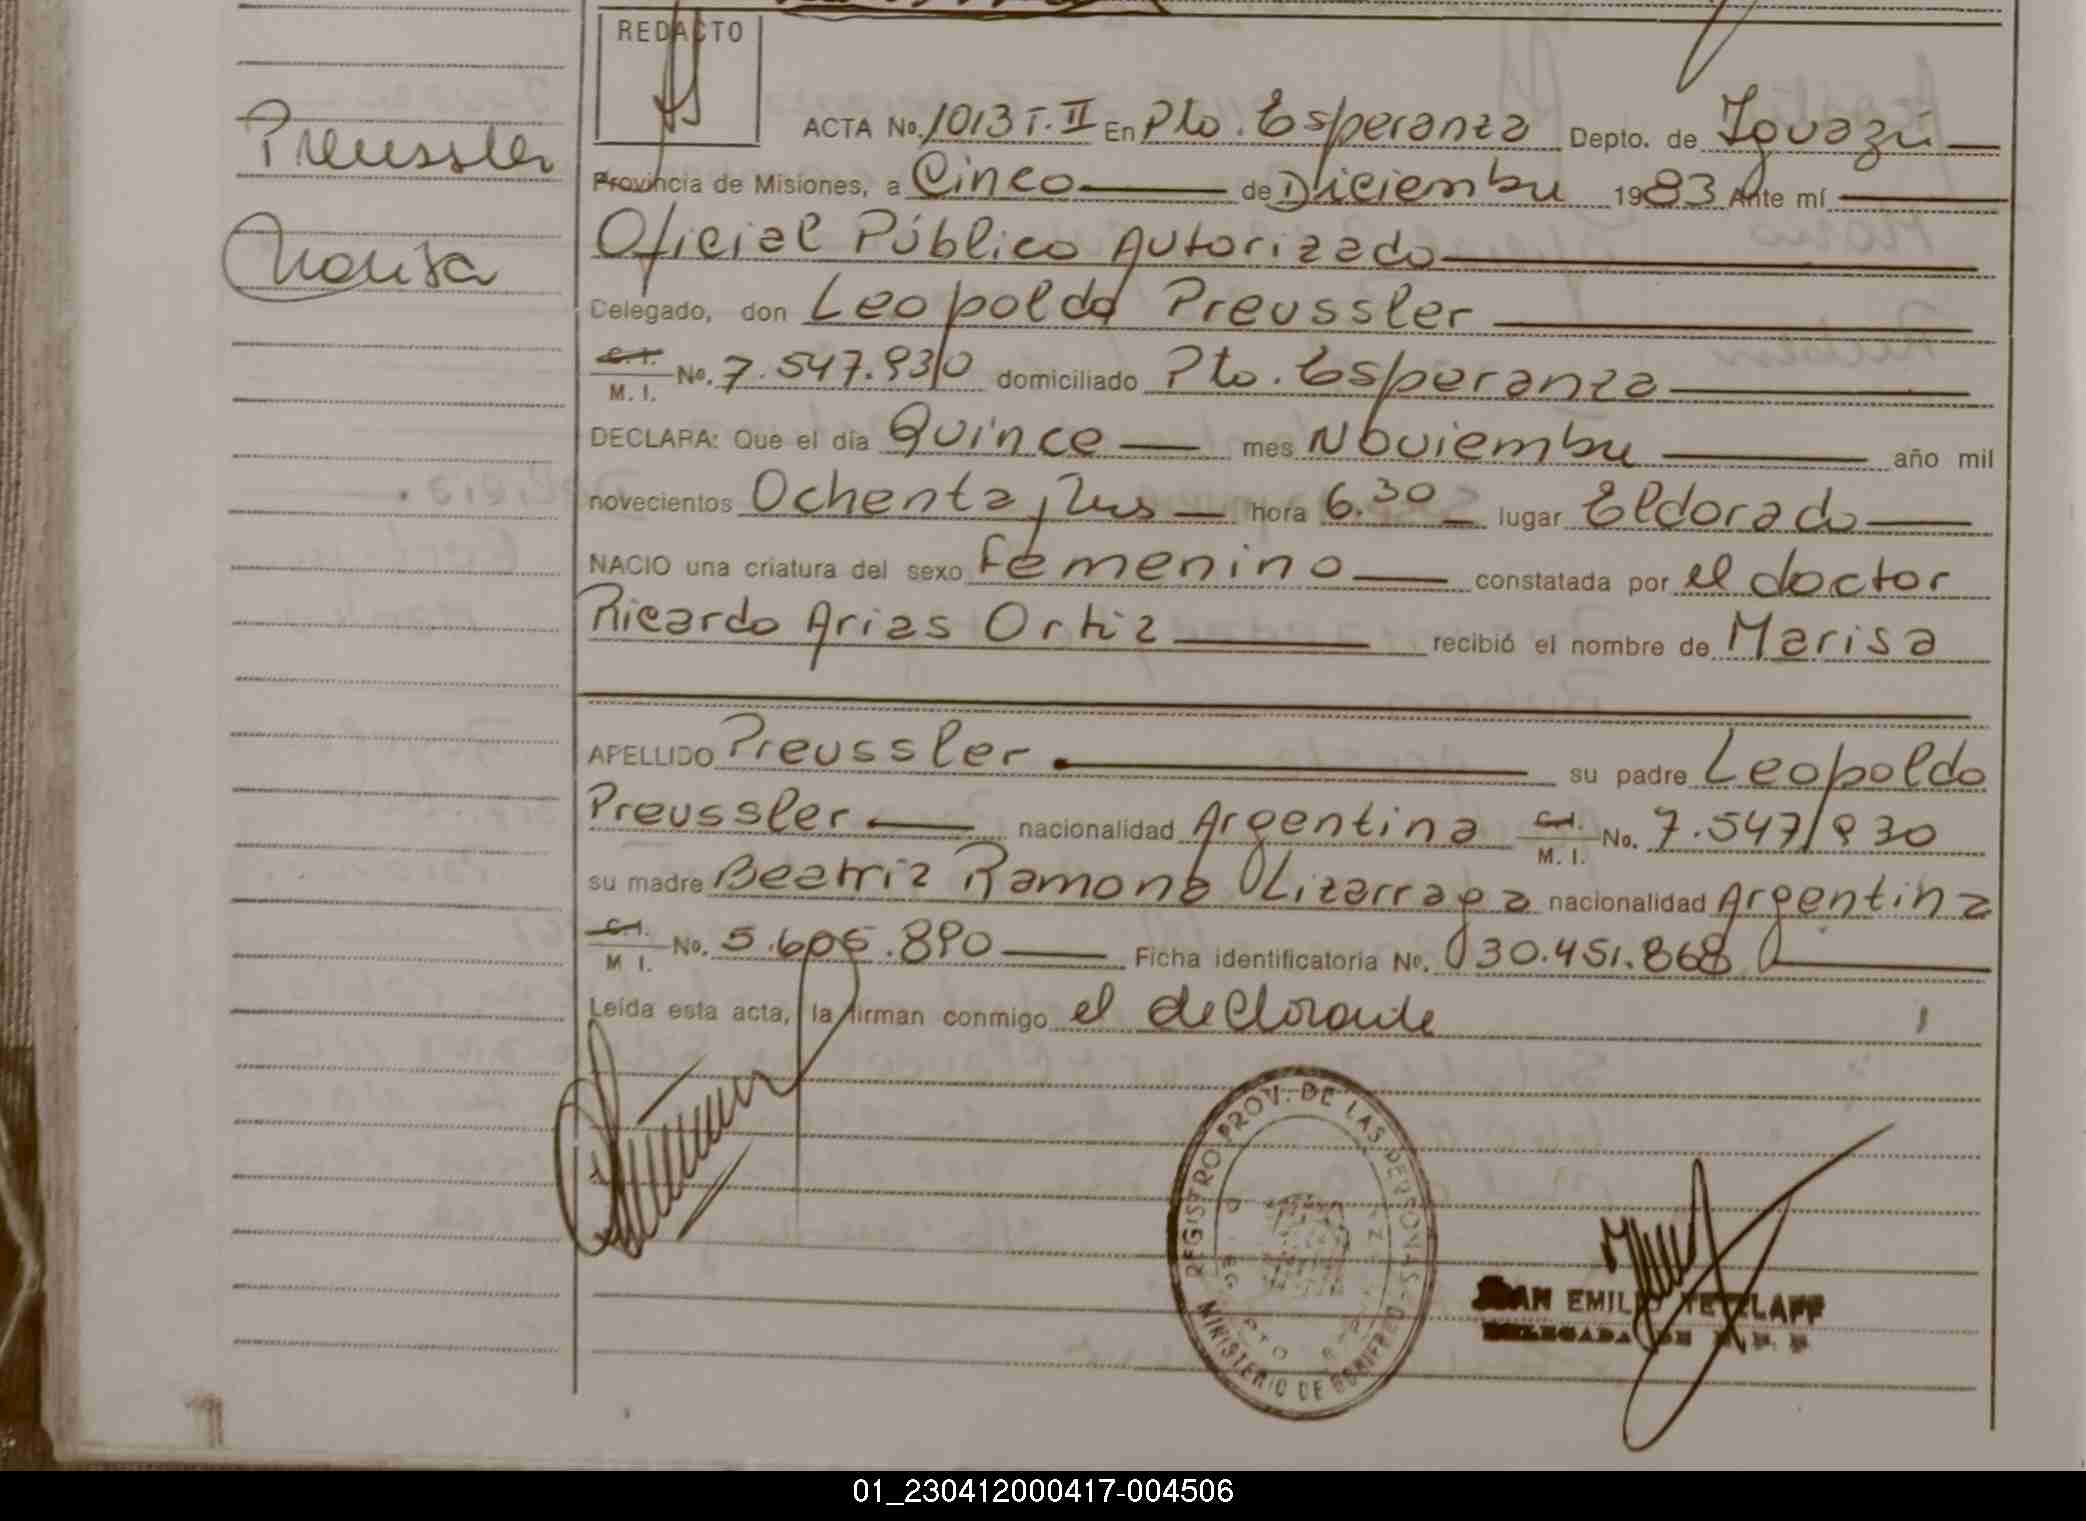 REDACTO
ACTA No. 1013 T. II En Pto. Esperanza Depto. de Iguazú
Preussler
Provincia de Misiones, a Cinco de Diciembre 1983 Ante mí
Marisa
Oficial Público Autorizado
Delegado, don Leopoldo Preussler
C.I. M. I. No. 7.547.930 domiciliado Pto. Esperanza
DECLARA: Que el día Quince mes Noviembre año mil
novecientos Ochenta y tres hora 6.30 lugar Eldorado
NACIO una criatura del sexo Femenino constatada por el doctor
Ricardo Arias Ortiz recibió el nombre de Marisa
APELLIDO Preussler su padre Leopoldo
Preussler nacionalidad Argentina C.I. M. I. No. 7.547.930
su madre Beatriz Ramona Lizarraga nacionalidad Argentina
C.I. M I. No. 5.605.890 Ficha identificatoria No. 30.451.868
Leída esta acta, la firman conmigo el declarante
REGISTRO PROV. DE LAS PERSONAS
MINISTERIO DE GOBIERNO
JUAN EMILIO TETZLAFF
DELEGADA DE
01_230412000417-004506